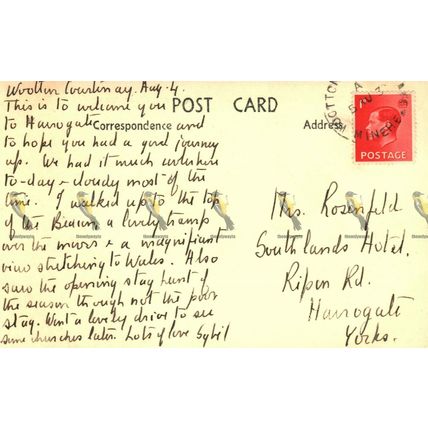 Wootton Courtenay. Aug. 4.
This is to welcome you
to Harrogate and
to hope you had a good journey
up. We had it much
to-day - cloudy most of the
time. I walked up to the top
of the Beacon a lovely tramp
over the moors & a magnificent
view stretching to Wales. Also
saw the opening stag hunt of
the season though not the poor
stag. Went a lovely drive to see
some churches later. Lots of love Sybil
POST CARD
Correspondence
Address
WOOTTON
MINEHEAD
POSTAGE
Mrs. Rosenfeld
Southlands Hotel.
Ripon Rd.
Harrogate
Yorks.